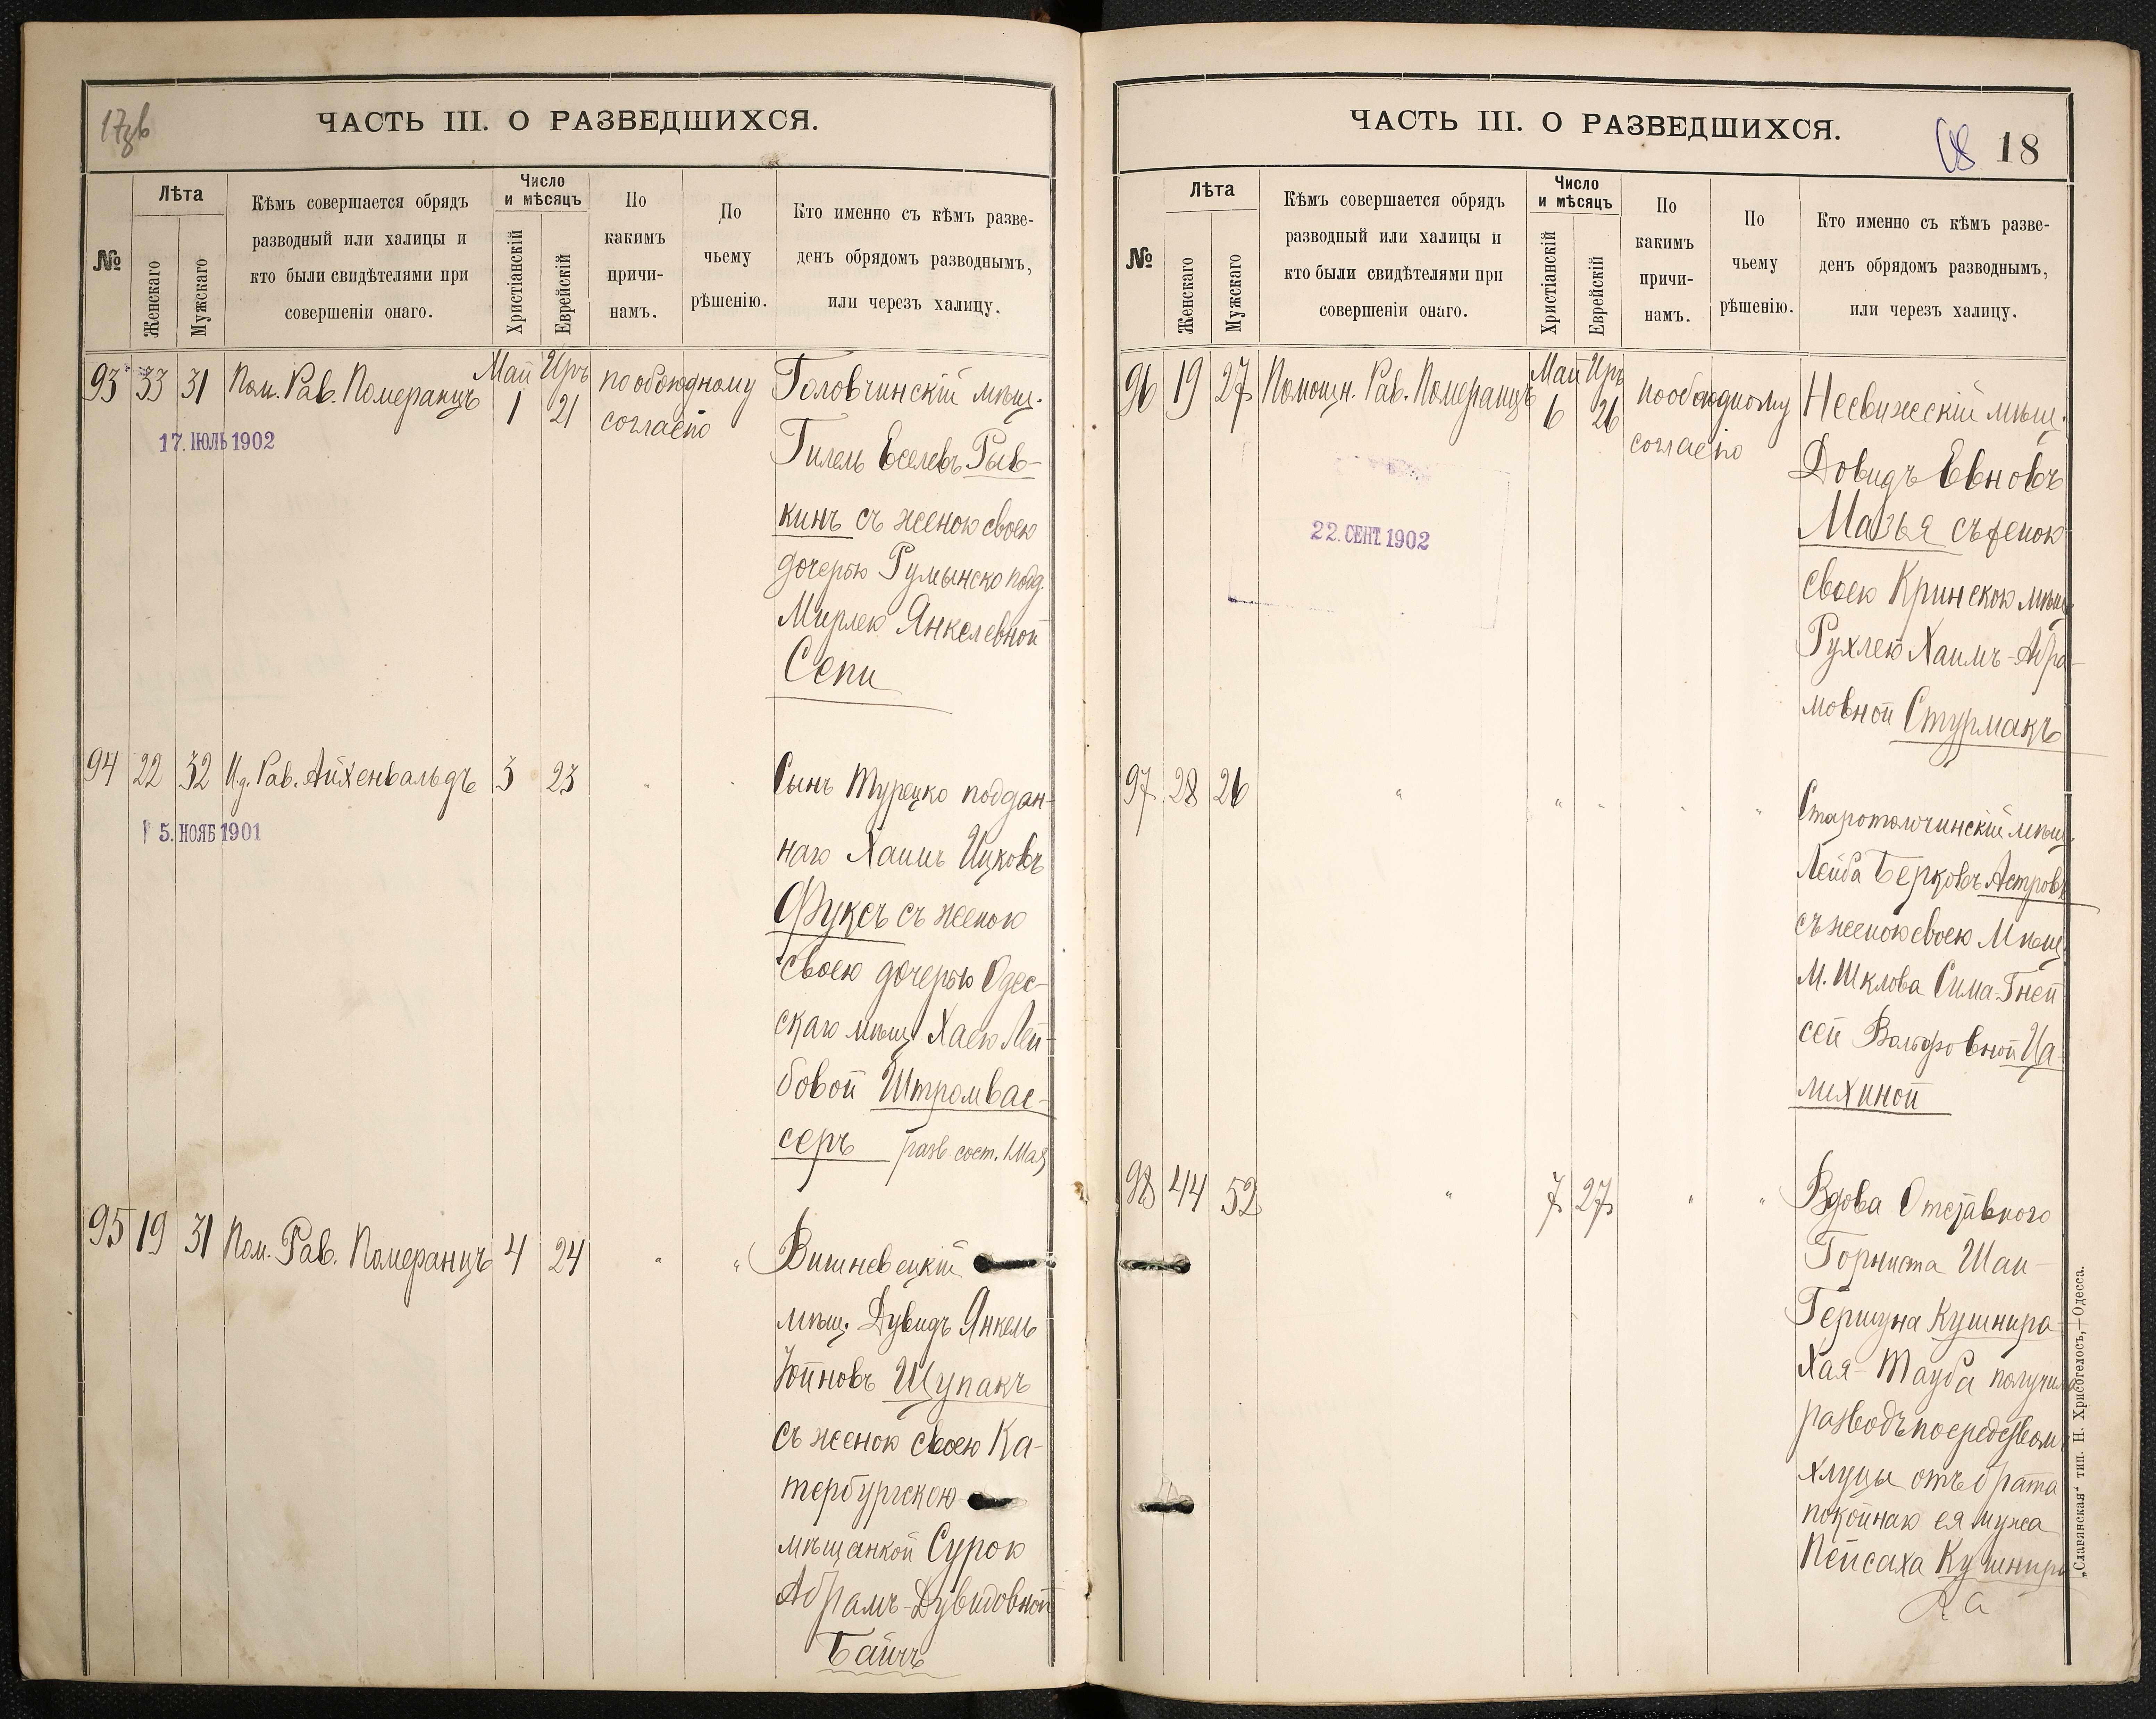 17об
ЧАСТЬ III. О РАЗВЕДШИХСЯ.
№
Лѣта
Женскаго
Мужскаго
Кѣмъ совершается обрядъ
разводный или халицы и
кто были свидѣтелями при
совершеніи онаго.
Число
и мѣсяцъ
Христіанскій
Еврейскій
По
какимъ
причи-
намъ.
По
чьему
рѣшенію.
Кто именно съ кѣмъ разве-
денъ обрядомъ разводнымъ,
или черезъ халицу.
93 33 31 Пом. Рав. Померанцъ Май 1 Иръ 21 по обоюдному
согласію
17. ІЮЛЬ 1902
Головчинскій мѣщ.
Гилель Еселевъ Рыв-
кинъ съ женою своею
дочерью Румынско подд.
Мирлею Янкелевной
Сепи
94 22 32 И.д. Рав. Айхенвальдъ 3 23 "
15. НОЯБ 1901
Сынъ Турецко поддан-
наго Хаимъ Ицковъ
Фуксъ съ женою
своею дочерью Одес-
скаго мѣщ. Хаею Лей-
бовой Штромвас-
серъ разв. сост. 1 Мая
95 19 31 Пом. Рав. Померанцъ 4 24 " "
Вишневецкій
мѣщ. Дувидъ Янкель
Юйновъ Щупакъ
съ женою своею Ка-
тербургскою
мѣщанкой Сурою
Абрамъ-Дувидовной
Байчъ
ЧАСТЬ III. О РАЗВЕДШИХСЯ.
68 18
№
Лѣта
Женскаго
Мужскаго
Кѣмъ совершается обрядъ
разводный или халицы и
кто были свидѣтелями при
совершеніи онаго.
Число
и мѣсяцъ
Христіанскій
Еврейскій
По
какимъ
причи-
намъ.
По
чьему
рѣшенію.
Кто именно съ кѣмъ разве-
денъ обрядомъ разводнымъ,
или черезъ халицу.
96 19 27 Помощн. Рав. Померанцъ Май 6 Иръ 26 по обоюдному
согласію
22. СЕНТ. 1902
Несвижескій мѣщ.
Довидъ Евновъ
Мазья съ женою
своею Кринскою мѣщ.
Рухлею Хаимъ-Абра-
мовной Стурмакъ
97 28 26 " " " " "
Старотолочинскій мѣщ.
Лейба Берковъ Астровъ
съ женою своею Мѣщ.
М. Шклова Сима-Гней
сей Вольфовной Ца-
лихиной
98 44 52 " 7 27 " "
Вдова Отставного
Горниста Шаи-
Гершуна Кушнира
Хая-Тауба получила
разводъ посредствомъ
хлуцы отъ брата
покойнаго ея мужа
Пейсаха Кушнира
„Славянская“ тип. Н. Хрисогелосъ,—Одесса.